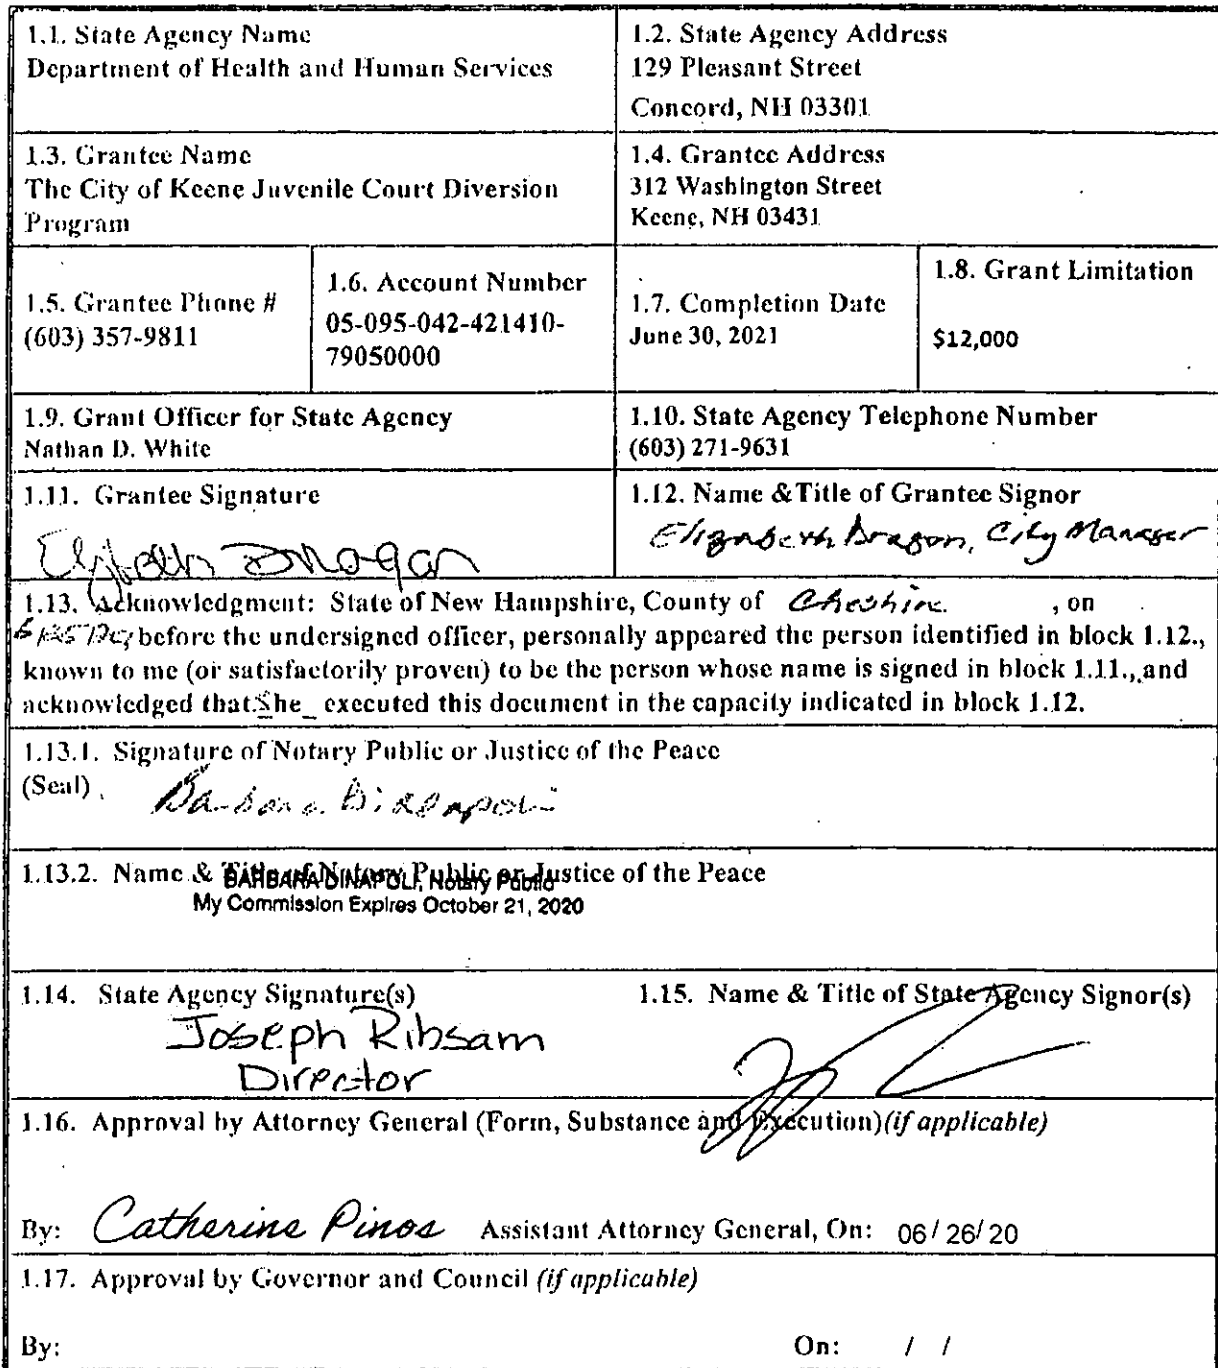 1.1. State Agency Name
Department of Health and Human Services
1.2. State Agency Address
129 Pleasant Street
Concord, NH 03301
1.3. Grantee Name
The City of Keene Juvenile Court Diversion
Program
1.4. Grantee Address
312 Washington Street
Keene, NH 03431
1.5. Grantee Phone #
(603) 357-9811
1.6. Account Number
05-095-042-421410-
79050000
1.7. Completion Date
June 30, 2021
1.8. Grant Limitation
$12,000
1.9. Grant Officer for State Agency
Nathan D. White
1.10. State Agency Telephone Number
(603) 271-9631
1.11. Grantee Signature
1.12. Name &Title of Grantee Signor
Elizabeth Dragon, City Manager
1.13. Acknowledgment: State of New Hampshire, County of Cheshire , on
before the undersigned officer, personally appeared the person identified in block 1.12.,
known to me (or satisfactorily proven) to be the person whose name is signed in block 1.11., and
acknowledged that She executed this document in the capacity indicated in block 1.12.
1.13.1. Signature of Notary Public or Justice of the Peace
(Seal)
1.13.2. Name & Title of Notary Public or Justice of the Peace
BARBARA DINAPOLI, Notary Public
My Commission Expires October 21, 2020
1.14. State Agency Signature(s)
Joseph Ribsam
Director
1.15. Name & Title of State Agency Signor(s)
1.16. Approval by Attorney General (Form, Substance and Execution)(if applicable)
By: Catherine Pinos Assistant Attorney General, On: 06/ 26/ 20
1.17. Approval by Governor and Council (if applicable)
By: On: / /